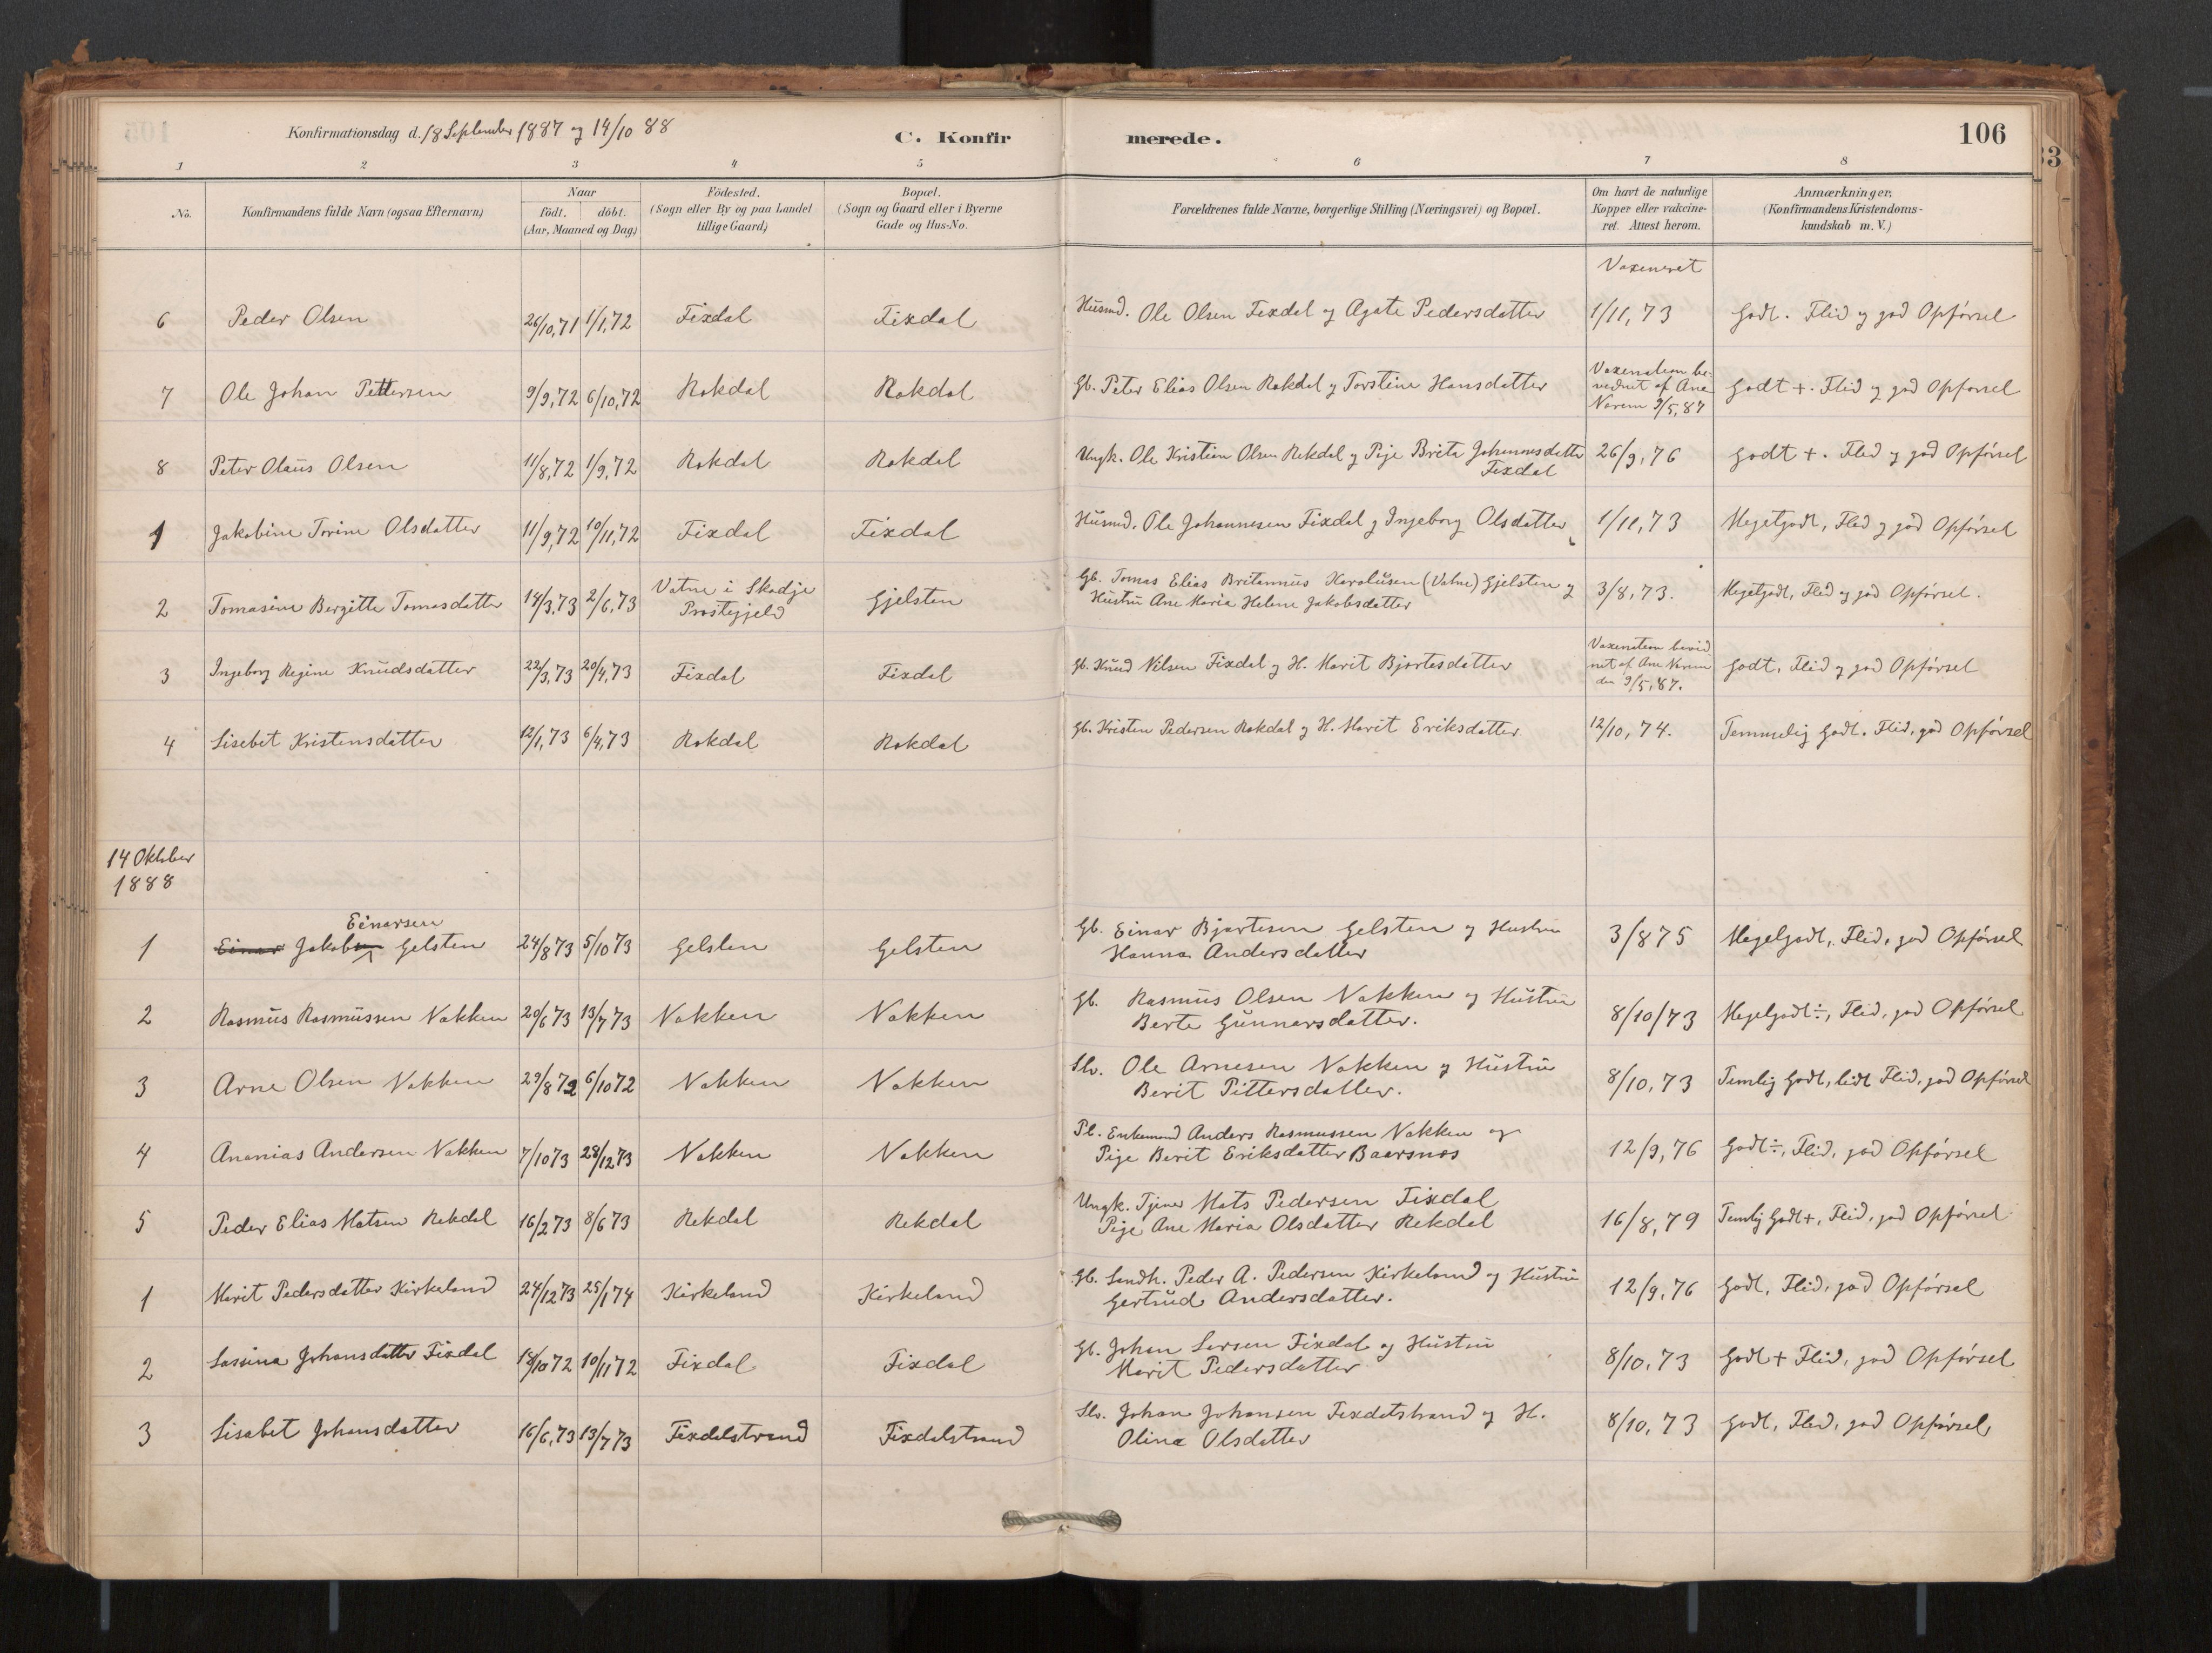 Konfirmationsdag d. 18 September 1887 og 14/10 88 C. Konfirmerede. 106
1 2 3 4 5 6 7 8
No. Konfirmandens fulde Navn (ogsaa Efternavn) Naar födt. döbt. (Aar, Maaned og Dag) Födested. (Sogn eller By og paa Landet tillige Gaard) Bopæl. (Sogn og Gaard eller i Byerne Gade og Hus-No. Forældrenes fulde Navne, borgerlige Stilling (Næringsvei) og Bopæl. Om havt de naturlige Kopper eller vakcineret. Attest herom. Anmærkninger. (Konfirmandens Kristendomskundskab m. V.)
33
6 Peder Olsen 26/10,71 1/1,72 Fixdal Fixdal Husmd. Ole Olsen Fixdal og Agate Pedersdatter Vaxeneret 1/11,73 Godt. Flid og god Opførsel
7 Ole Johan Pettersen 9/9,72 6/10,72 Rekdal Rekdal Gb. Peter Elias Olsen Rekdal og Torstine Hansdatter Vaxenation bevidnet af Ane Norem 9/5,87 Godt +. Flid og god Opførsel
8 Peter Olaüs Olsen 11/8,72 1/9,72 Rekdal Rekdal Ungk. Ole Kristian Olsen Rekdal og Pige Brita Johannesdatter Fixdal 26/9,76 Godt +. Flid og god Opførsel
1 Jakobine Torine Olsdatter 11/9,72 10/11,72 Fixdal Fixdal Husmd. Ole Johannesen Fixdal og Ingeborg Olsdatter 1/11,73 Megetgodt, Flid og god Opførsel
2 Tomasine Bergitte Tomasdatter 14/3,73 2/6,73 Vatne i Skodje Præstegjeld Gjelsten Gb. Tomas Elias Britannüs Karolüsen (Vatne) Gjelsten og Hüstrü Ane Maria Helene Jakobsdatter 3/8,73. Megetgodt, Flid og god Opførsel.
3 Ingeborg Regine Knüdsdatter 22/3,73 20/4,73 Fixdal Fixdal Gb. Knüd Nilsen Fixdal og H. Marit Bjørtesdatter Vaxenation bevidnet af Ane Norem den 9/5,87. Godt, Flid og god Opførsel
4 Lisebet Kristensdatter 12/1,73 6/4,73 Rekdal Rekdal Gb. Kristen Pedersen Rekdal og H. Marit Eriksdatter 12/10,74. Temmelig Godt. Flid, god Opførsel
14 Oktober
1888
1 Einar Jakob Einarsen Gelsten 24/8 73 5/10 73 Gelsten Gelsten Gb. Einar Bjørtesen Gelsten og Hustru Hanna Andersdatter 3/8 75 Megetgodt, Flid, god Opførsel
2 Rasmüs Rasmüssen Nakken 20/6 73 13/7 73 Nakken Nakken Gb. Rasmüs Olsen Nakken og Hüstrü Berte Günnarsdatter. 8/10/73 Megetgodt÷, Flid, god Opførsel
3 Arne Olsen Nakken 29/8 72 6/10 72 Nakken Nakken Slv. Ole Arnesen Nakken og Hüstrü Berit Pittersdatter. 8/10,73 Temlig Godt, lidt Flid, god Opførsel
4 Ananias Andersen Nakken 7/10 73 28/12 73 Nakken Nakken Pl. Enkemand Anders Rasmussen Nakken og Pige Berit Eriksdatter Baarsnæs 12/9,76 Godt÷, Flid, god Opførsel
5 Peder Elias Matsen Rekdal 16/2 73 8/6 73 Rekdal Rekdal Ungk. Tjener Mats Pedersen Fixdal Pige Ane Maria Olsdatter Rekdal 16/8,79 Temlig Godt+, Flid, god Opførsel
1 Marit Pedersdatter Kirkeland 24/12 73 25/1 74 Kirkeland Kirkeland Gb. Landh. Peder A. Pedersen Kirkeland og Hüstrü Gertrüd Andersdatter. 12/9,76 Godt, Flid, god Opførsel
2 Lassina Johansdatter Fixdal 18/10 72 10/11 72 Fixdal Fixdal Gb. Johan Larsen Fixdal og Hüstrü Marit Pedersdatter 8/10,73 Godt + Flid, god Opførsel
3 Lisabet Johansdatter 16/6,73 13/7 73 Fixdalstrand Fixdalstrand Slv. Johan Johansen Fixdalstrand og H. Olina Olsdatter 8/10,73 Godt, Flid, god Opførsel,